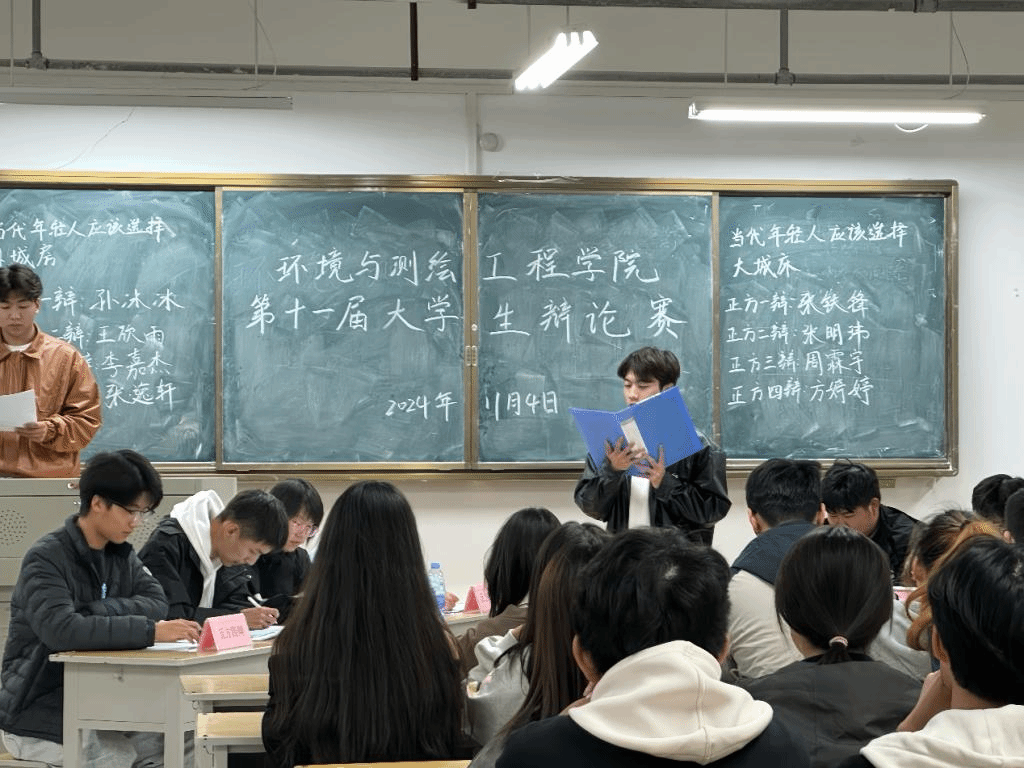 当代年轻人应该选择
城房
一辩:孙冰冰
辩:王欣雨
李嘉杰
张逸轩
环境与测绘工程学院
第十一届大学生辩论赛
2024年11月4日
当代年轻人应该选择
大城床
正方一辩:张铁锋
正方二辩:张明玮
正方三辩:周霖宇
正方四辩:方婷婷